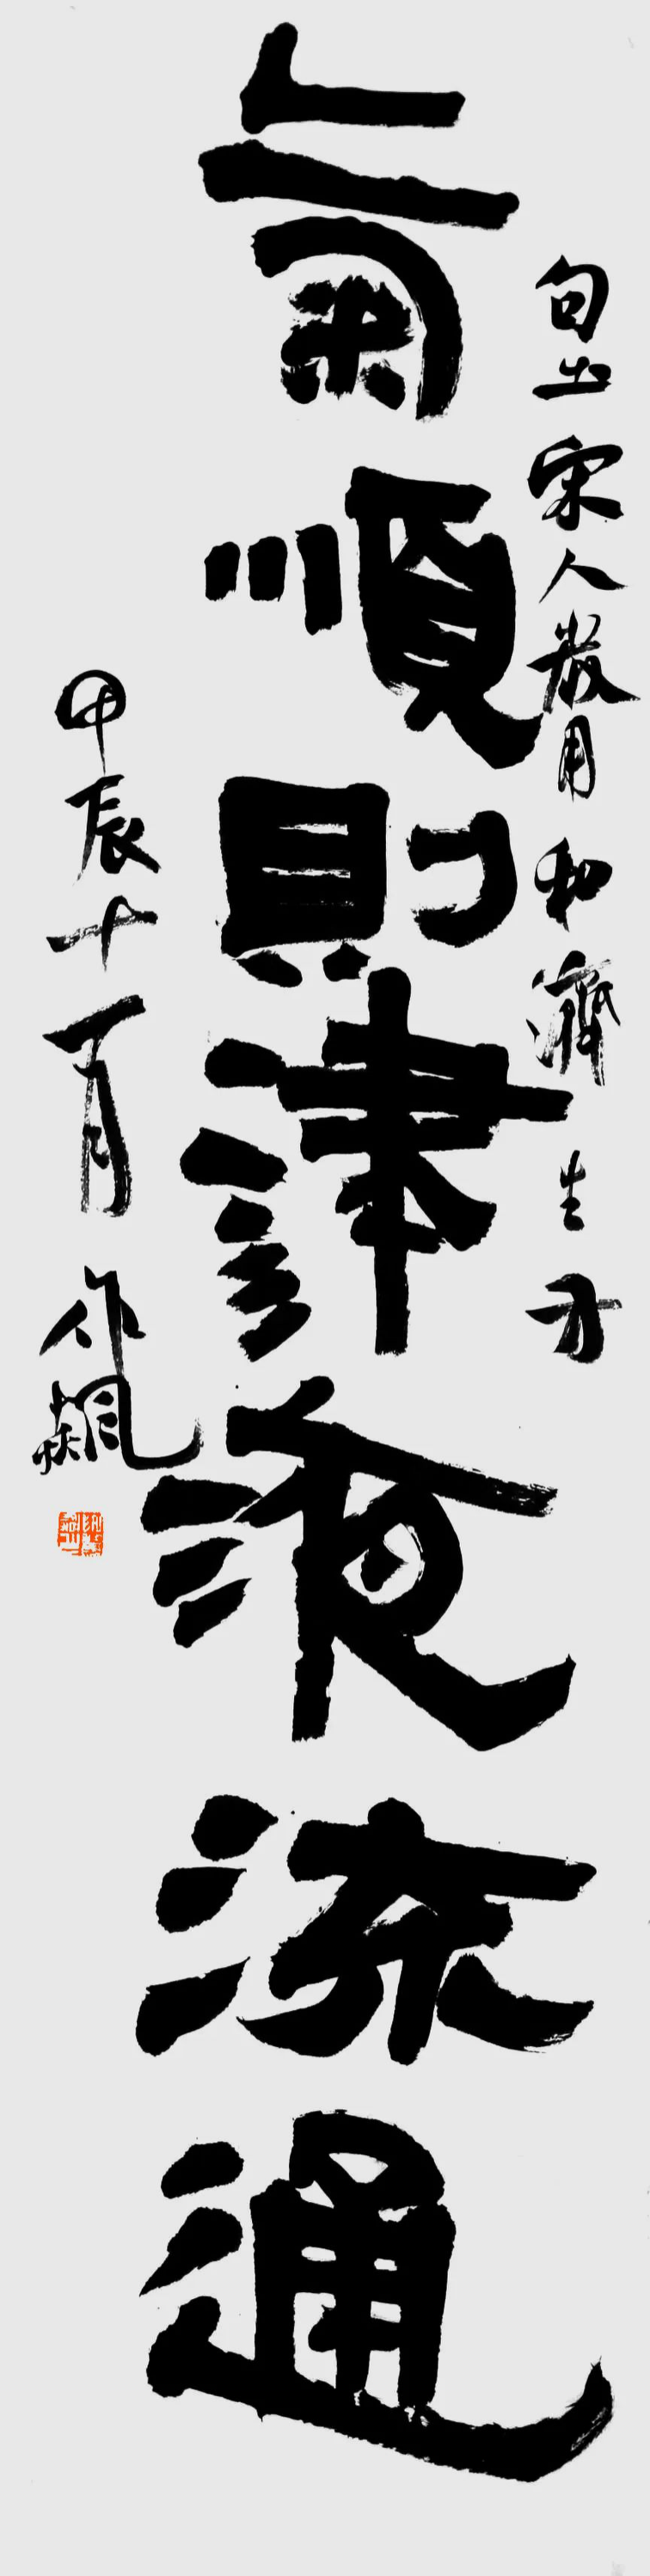 句出宋人嚴用和濟生方
氣順則津液流通
甲辰十一月作